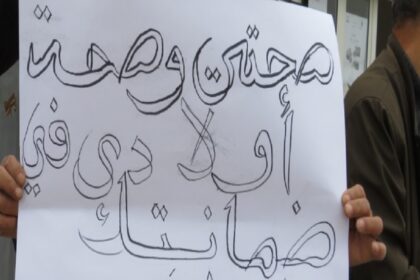 صحتي وصحة
أولادي في
ضمانتك